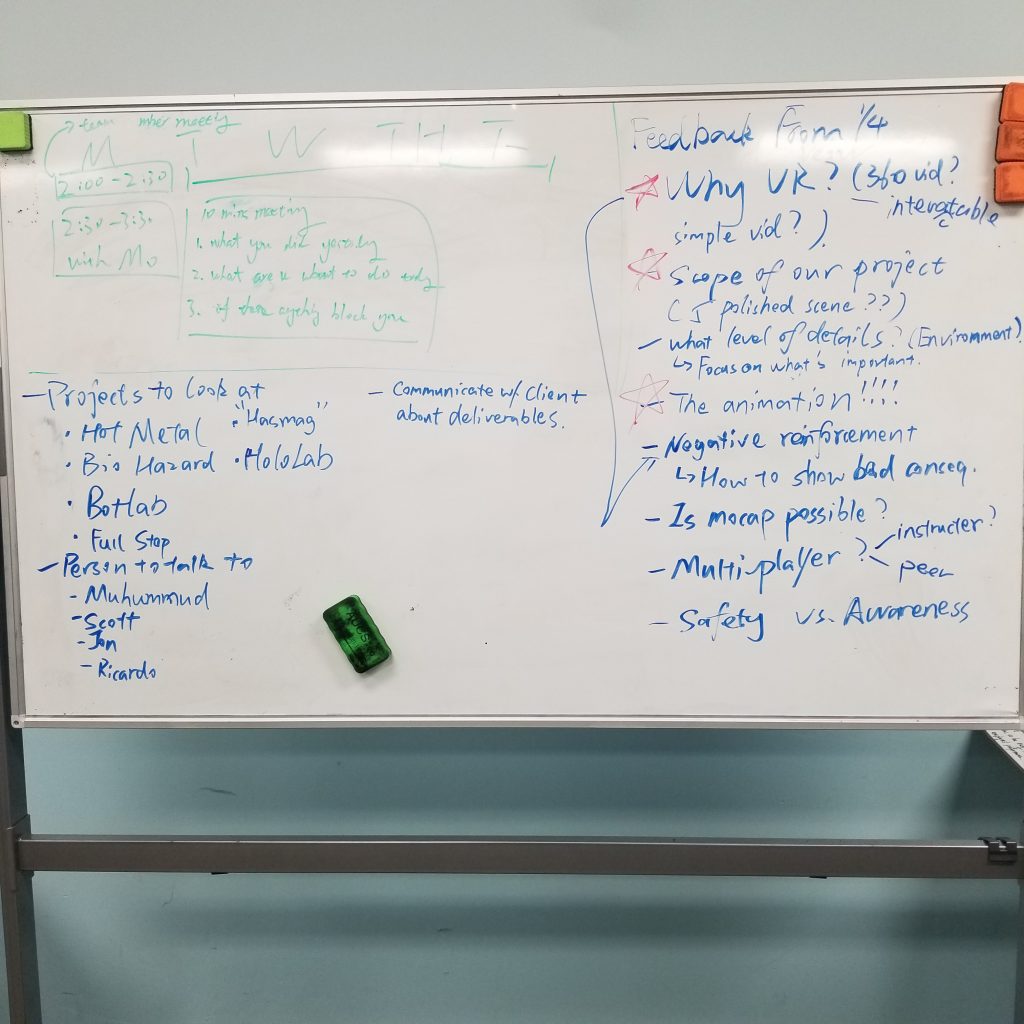 team mber meeting
M T W TH F
2:00-2:30
2:30-3:30
with Mo
10 mins meeting
1. what you did
2. what are u about to do
3. if there block you
- Projects to look at
• Hot Metal
• "Hasmag"
• Bio Hazard
• HoloLab
• Botlab
• Full Stop
- Person to talk to
- Muhummud
- Scott
- Jon
- Ricardo
- Communicate w/ Client
about deliverables.
Feedback From 1/4
Why VR? (360 vid?
simple vid?).
- interactable
Scope of our project
(1 polished scene ??)
- what level of details? (Environment)
↳ Focus on what's important.
- The animation!!!!
- Negative reinforcement
↳ How to show bad conseq.
- Is mocap possible?
- Multi-player?
instructer?
peer
- Safety vs. Awareness